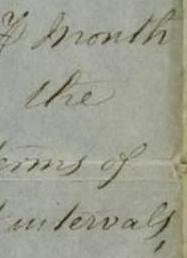 Month
the
terms of
intervals,